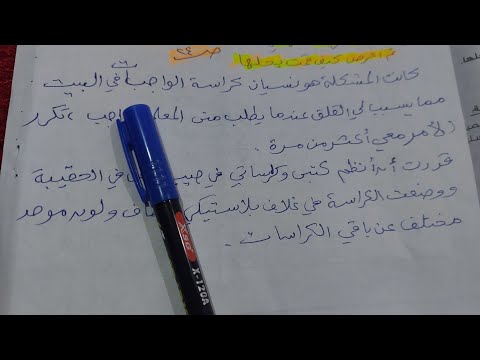 ص ٢٤
٦
كانت المشكلة هو نسيان كراسة الواجب في البيت
مما يسبب لي القلق عندما يطلب مني المعلم ، تكرر
الأمر معي أكثر من مرة .
قررت أن أنظم كتبي وكراساتي في الحقيبة
ووضعت الكراسة في غلاف بلاستيكي ولونه موحد
مختلف عن باقي الكراسات .
X-120A